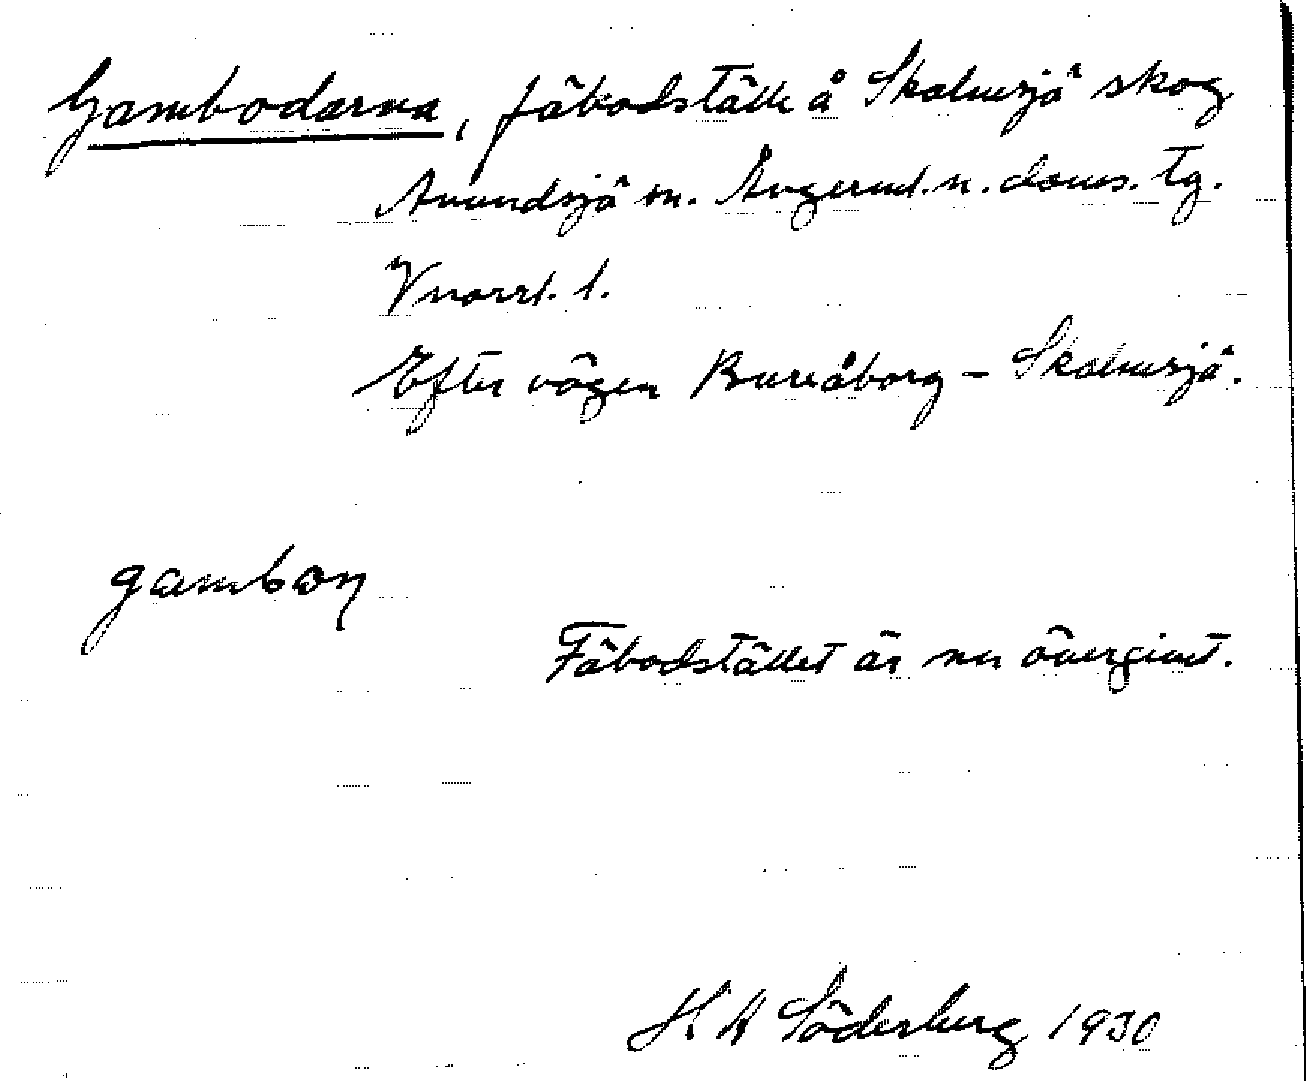 Gambodarna, fäbodställe å Skalmsjö skog
Anundsjö sn. Ångerml. n. doms. tg.
Vnorrl. l.
Efter vägen Bureåborg – Skalmsjö.
gamboṇ
Fäbodstället är nu övergivet.
H A Söderberg 1930